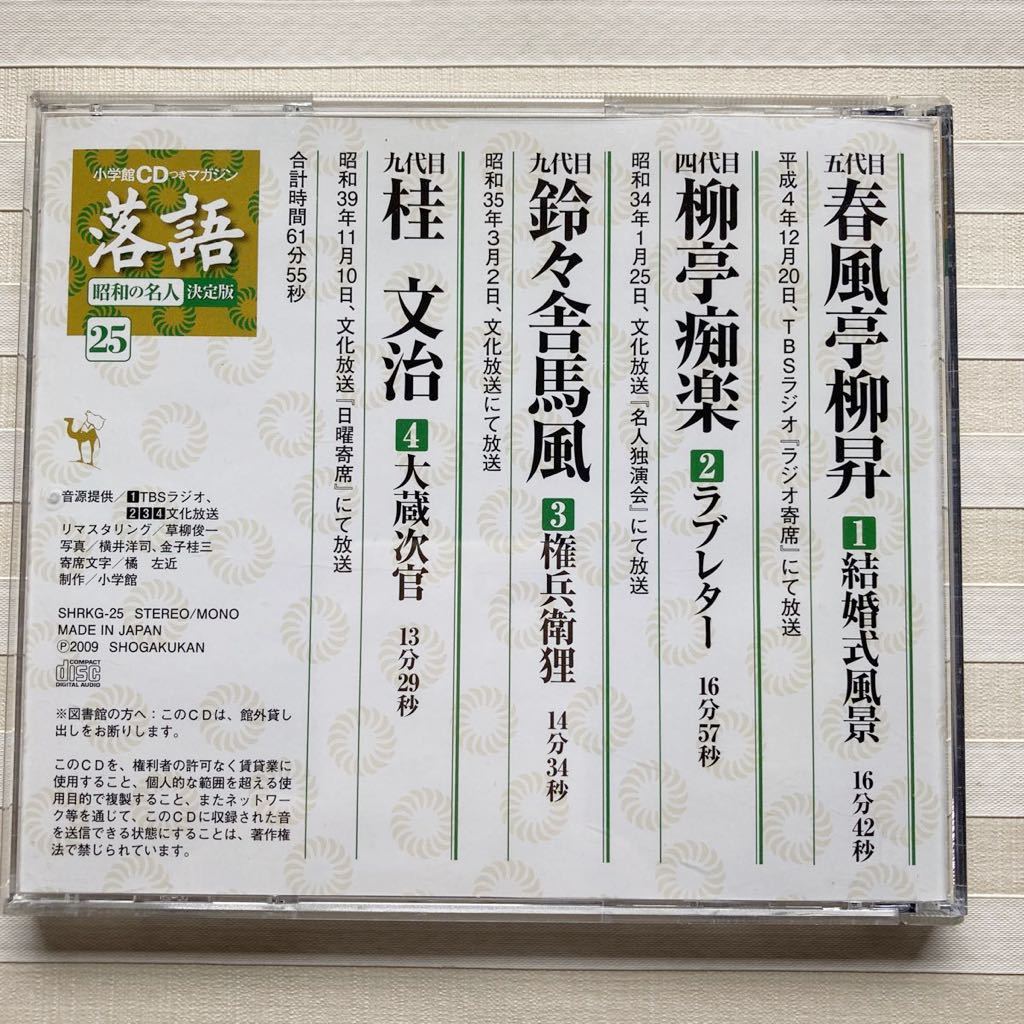 五代目
春風亭柳昇
1結婚式風景
16分42秒
平成4年12月20日、TBSラジオ『ラジオ寄席』にて放送
四代目
柳亭痴楽
2ラブレター
16分57秒
昭和34年1月25日、文化放送『名人独演会』にて放送
九代目
鈴々舎馬風
3権兵衛狸
14分34秒
昭和35年3月2日、文化放送にて放送
九代目
桂 文治
4大蔵次官
13分29秒
昭和39年11月10日、文化放送『日曜寄席』にて放送
合計時間61分55秒
小学館CDつきマガジン
落語
昭和の名人 決定版
25
音源提供／1TBSラジオ、
234文化放送
リマスタリング／草柳俊一
写真／横井洋司、金子桂三
寄席文字／橘 左近
制作／小学館
SHRKG-25 STEREO/MONO
MADE IN JAPAN
Ⓟ2009 SHOGAKUKAN
COMPACT
disc
DIGITAL AUDIO
※図書館の方へ：このCDは、館外貸し
出しをお断りします。
このCDを、権利者の許可なく賃貸業に
使用すること、個人的な範囲を超える使
用目的で複製すること、またネットワー
ク等を通じて、このCDに収録された音
を送信できる状態にすることは、著作権
法で禁じられています。